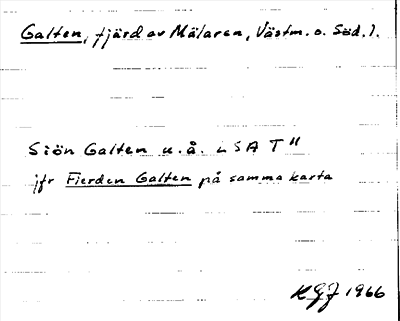 Galten, fjärd av Mälaren, Västm. o. Söd. l.
Siön Galten u.å. LSA T"
jfr Fierden Galten på samma karta
KGJ 1966